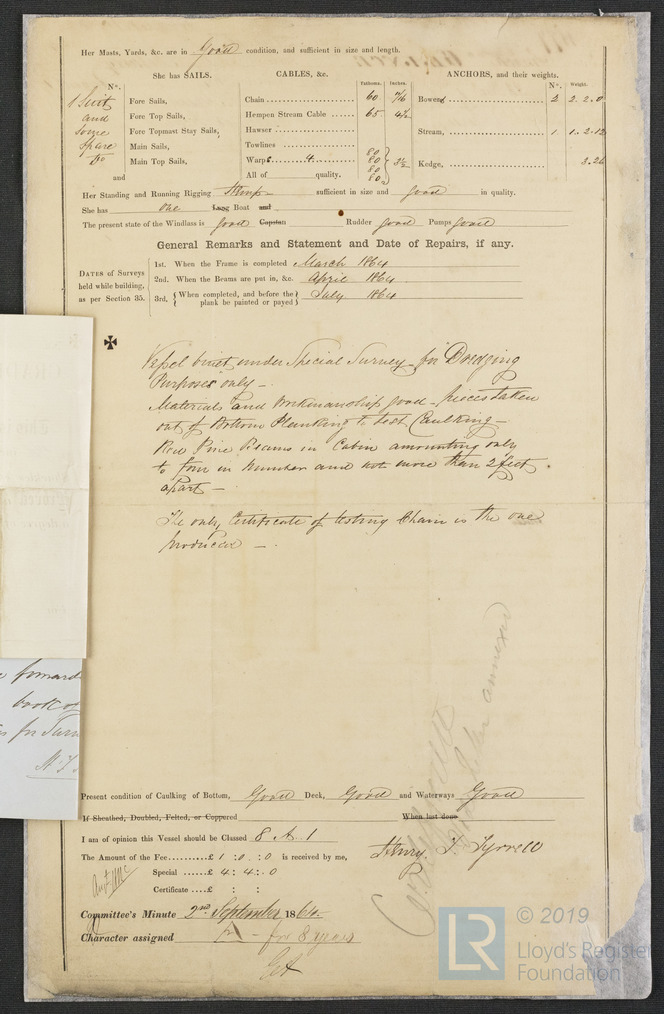 Her Masts, Yards, &c. are in Good condition, and sufficient in size and length.
She has SAILS. CABLES, &c. ANCHORS, and their weights.
Fathoms. Inches. Nº. Weight.
Nº.
1 Suit Fore Sails, Chain 60 7/16 Bowers 2 2.2.0
and Fore Top Sails, Hempen Stream Cable 65 4½
some Fore Topmast Stay Sails, Hawser Stream, 1 1.2.12
spare Main Sails, Towlines 80
do Main Top Sails, Warps 4 80 3½ Kedge, 3.26
80
and All of quality. 80
Her Standing and Running Rigging Hemp sufficient in size and good in quality.
She has one Long Boat and
The present state of the Windlass is good Capstan Rudder good Pumps good
General Remarks and Statement and Date of Repairs, if any.
DATES of Surveys held while building, as per Section 35.
1st. When the Frame is completed March 1864
2nd. When the Beams are put in, &c. April 1864
3rd. { When completed, and before the plank be painted or payed } July 1864
Vessel built under Special Survey for Dredging
Purposes only –
Materials and Workmanship good – pieces taken
out of Bottom Planking to test Caulking –
Red Pine Beams in Cabin amounting only
to four in number and not more than 2 feet
apart –
The only Certificate of testing Chain is the one
produced –
forward
book of
for
H. T.
Present condition of Caulking of Bottom, Good Deck, Good and Waterways Good
If Sheathed, Doubled, Felted, or Coppered When last done
I am of opinion this Vessel should be Classed 8 A 1
The Amount of the Fee £ 1 : 0 : 0 is received by me,
Henry T. Tyrrell
Special £ 4 : 4 : 0
Certificate £ : :
Committee's Minute 2nd September 1864
Character assigned A – for 8 years
annexed
LR
© 2019
Lloyd's Register
Foundation